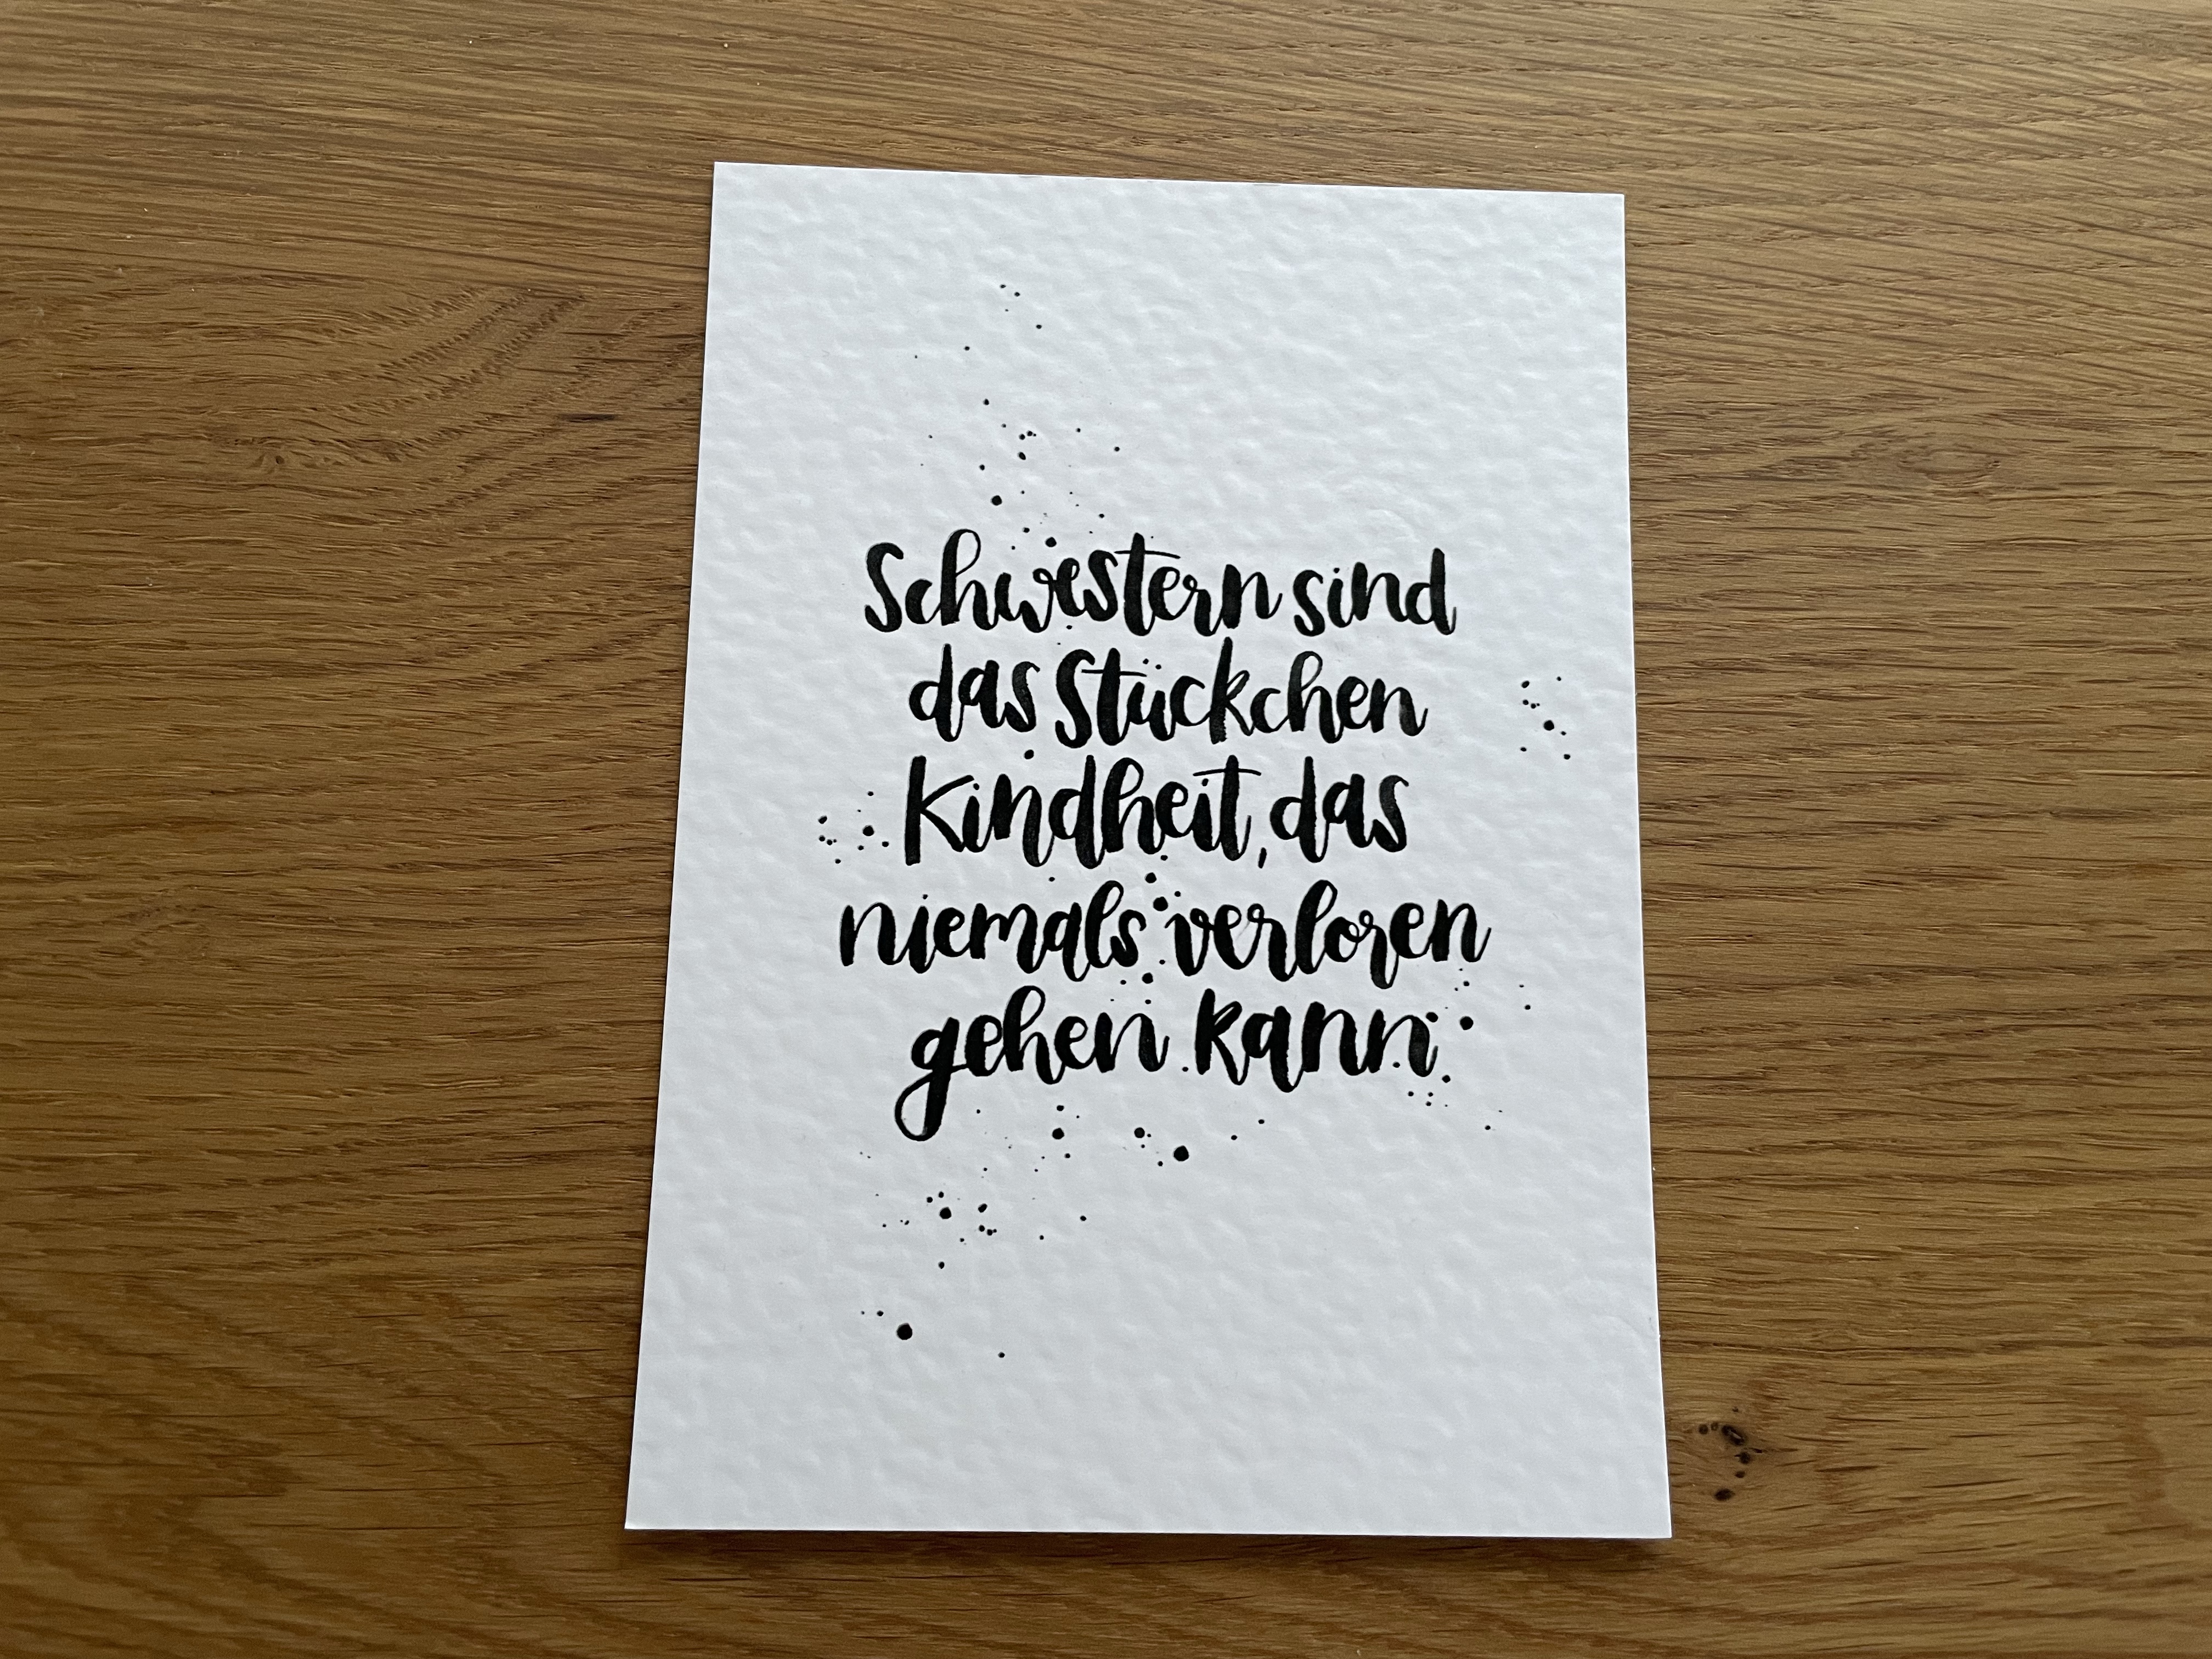 Schwestern sind
das Stückchen
Kindheit, das
niemals verloren
gehen kann